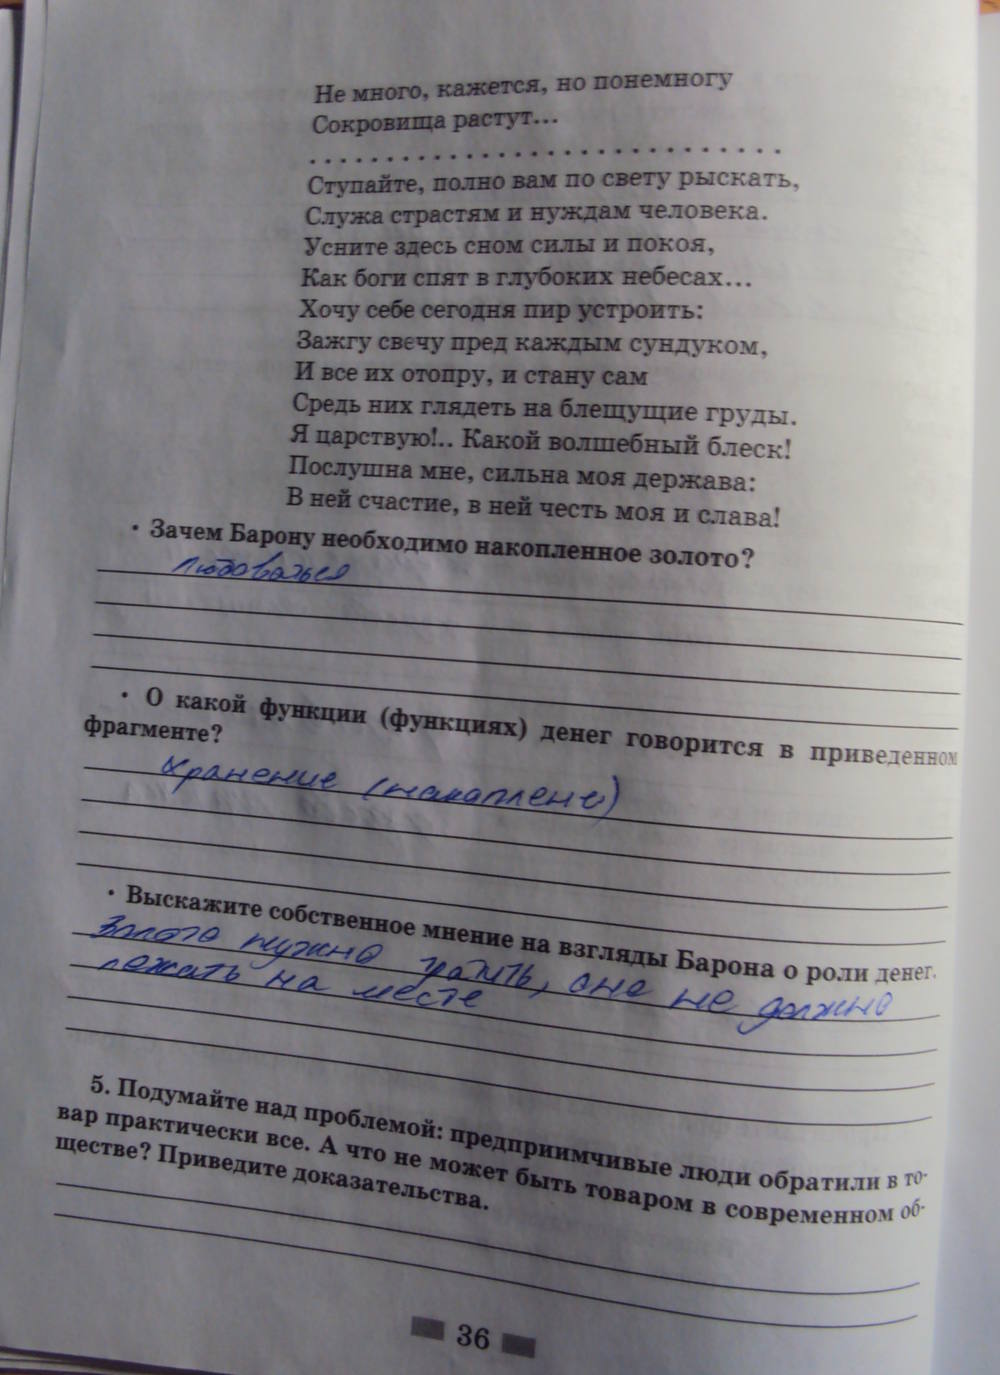 Не много, кажется, но понемногу
Сокровища растут...
. . . . . . . . . . . . . . . . . . . . . . . . . . . . .
Ступайте, полно вам по свету рыскать,
Служа страстям и нуждам человека.
Усните здесь сном силы и покоя,
Как боги спят в глубоких небесах...
Хочу себе сегодня пир устроить:
Зажгу свечу пред каждым сундуком,
И все их отопру, и стану сам
Средь них глядеть на блещущие груды.
Я царствую!.. Какой волшебный блеск!
Послушна мне, сильна моя держава:
В ней счастие, в ней честь моя и слава!
• Зачем Барону необходимо накопленное золото?
Любоваться
• О какой функции (функциях) денег говорится в приведенном
фрагменте?
Хранение (накаплене)
• Выскажите собственное мнение на взгляды Барона о роли денег.
Золото нужно тратить, оно не должно
лежать на месте
5. Подумайте над проблемой: предприимчивые люди обратили в то-
вар практически все. А что не может быть товаром в современном об-
ществе? Приведите доказательства.
36